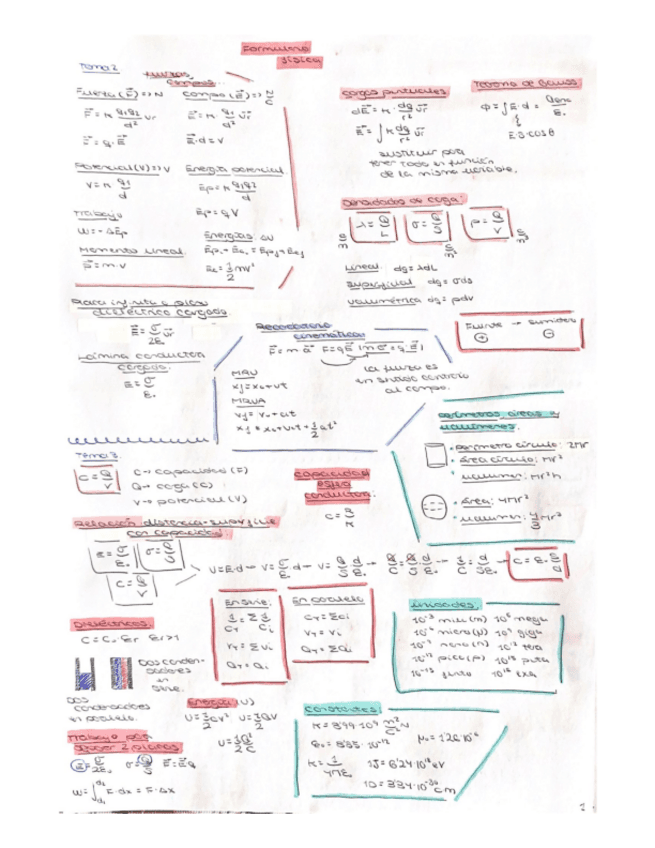 Formulario
física
Tema 2
Fuerza (F⃗) => N
Campo (E⃗) => N/C
F⃗ = K · q₁q₂/d² u⃗r
E⃗ = K · q₁/d² u⃗r
F⃗ = q · E⃗
E · d = V
Potencial (V) => V
Energía potencial
V = K q₁/d
Ep = K q₁q₂/d
Trabajo
Ep = q V
W = - ΔEp
Energías
Momento lineal
p⃗ = m · v
Ec = 1/2 mv²
Cargas puntuales
dE⃗ = K · dq/r² u⃗r
E⃗ = ∫ K dq/r² u⃗r
sustituir para
tener todo en función
de la misma variable.
Teorema de Gauss
E·S·cosθ
Densidades de carga:
λ = Q/L
σ = Q/S
ρ = Q/V
Lineal: dq = λdL
Superficial dq = σds
Volumétrica dq = ρdv
Placa infinita o plano
dieléctrico cargado
E⃗ = σ/2ε₀ u⃗r
Lámina conductora
cargada.
E = σ/ε₀
Recordatorio
cinemática:
F⃗ = m a⃗ F = qE⃗ m a⃗ = q · E⃗
MRU
xf = x₀ + vt
MRUA
vf = v₀ + at
xf = x₀ + v₀t + 1/2 at²
La fuerza es
en sentido contrario
al campo.
Fuente → Sumidero
⊕ ⊖
Perímetros, áreas y
volúmenes:
• Perímetro círculo: 2πr
• área círculo: πr²
volumen: πr²h
• Área: 4πr²
• volumen: 4/3 πr³
Tema 3.
C = Q/V
C → capacidad (F)
Q → carga (C)
V → potencial (V)
Capacidad
esfera
conductora:
C = R/K
Relación distancia-superficie
con capacidad
E = σ/ε₀
σ = Q/S
C = Q/V
V = E·d → V = σ/ε₀ d → V = Q/S d/ε₀ → Q/C = Q/S d/ε₀ → 1/C = d/Sε₀ → C = ε₀ S/d
Dieléctricos
C = C₀ εr εr>1
Dos conden-
sadores
en
serie.
Dos
condensadores
en paralelo.
En serie.
1/CT = Σ 1/Ci
VT = Σ Vi
QT = Qi
En paralelo
CT = ΣCi
VT = Vi
QT = ΣQi
Unidades.
10⁻³ mili (m) 10⁶ mega
10⁻⁶ micro (μ) 10⁹ giga
10⁻⁹ nano (n) 10¹² tera
10⁻¹² pico (p) 10¹⁵ peta
10⁻¹⁵ femto 10¹⁸ exa
Energía (U)
U = 1/2 CV² U = 1/2 QV
U = 1/2 Q²/C
Trabajo para
separar 2 placas
E = σ/2ε₀ σ = Q/S
W = ∫ F·dx = F·Δx
Constantes.
K = 8'99·10⁹ m²/C² N
ε₀ = 8'85·10⁻¹²
μ₀ = 1'26·10⁻⁶
K = 1/4πε₀
1J = 6'24·10¹⁸ eV
1D = 3'34·10⁻³⁰ Cm